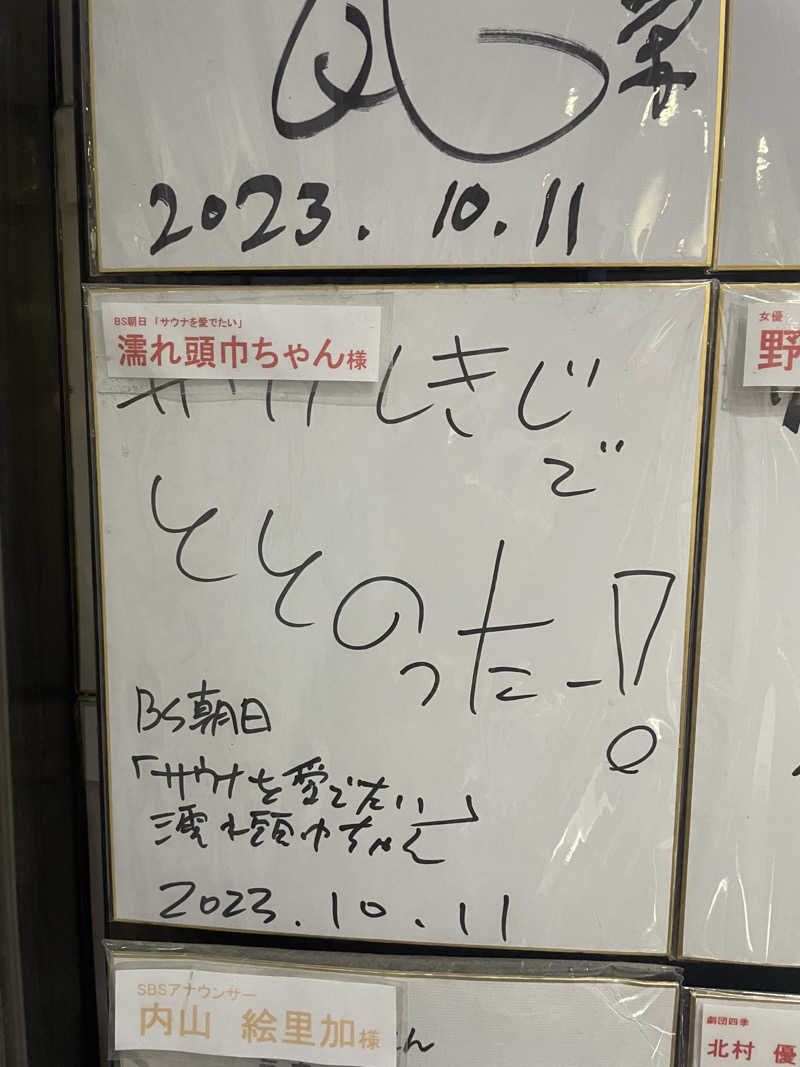 栄
2023. 10. 11
BS朝日 「サウナを愛でたい」
濡れ頭巾ちゃん様
サウナしきじ
で
ととのったー!
BS朝日
「サウナを愛でたい」
濡れ頭巾ちゃん
2023. 10. 11
女優
野
SBSアナウンサー
内山 絵里加様
劇団四季
北村 優